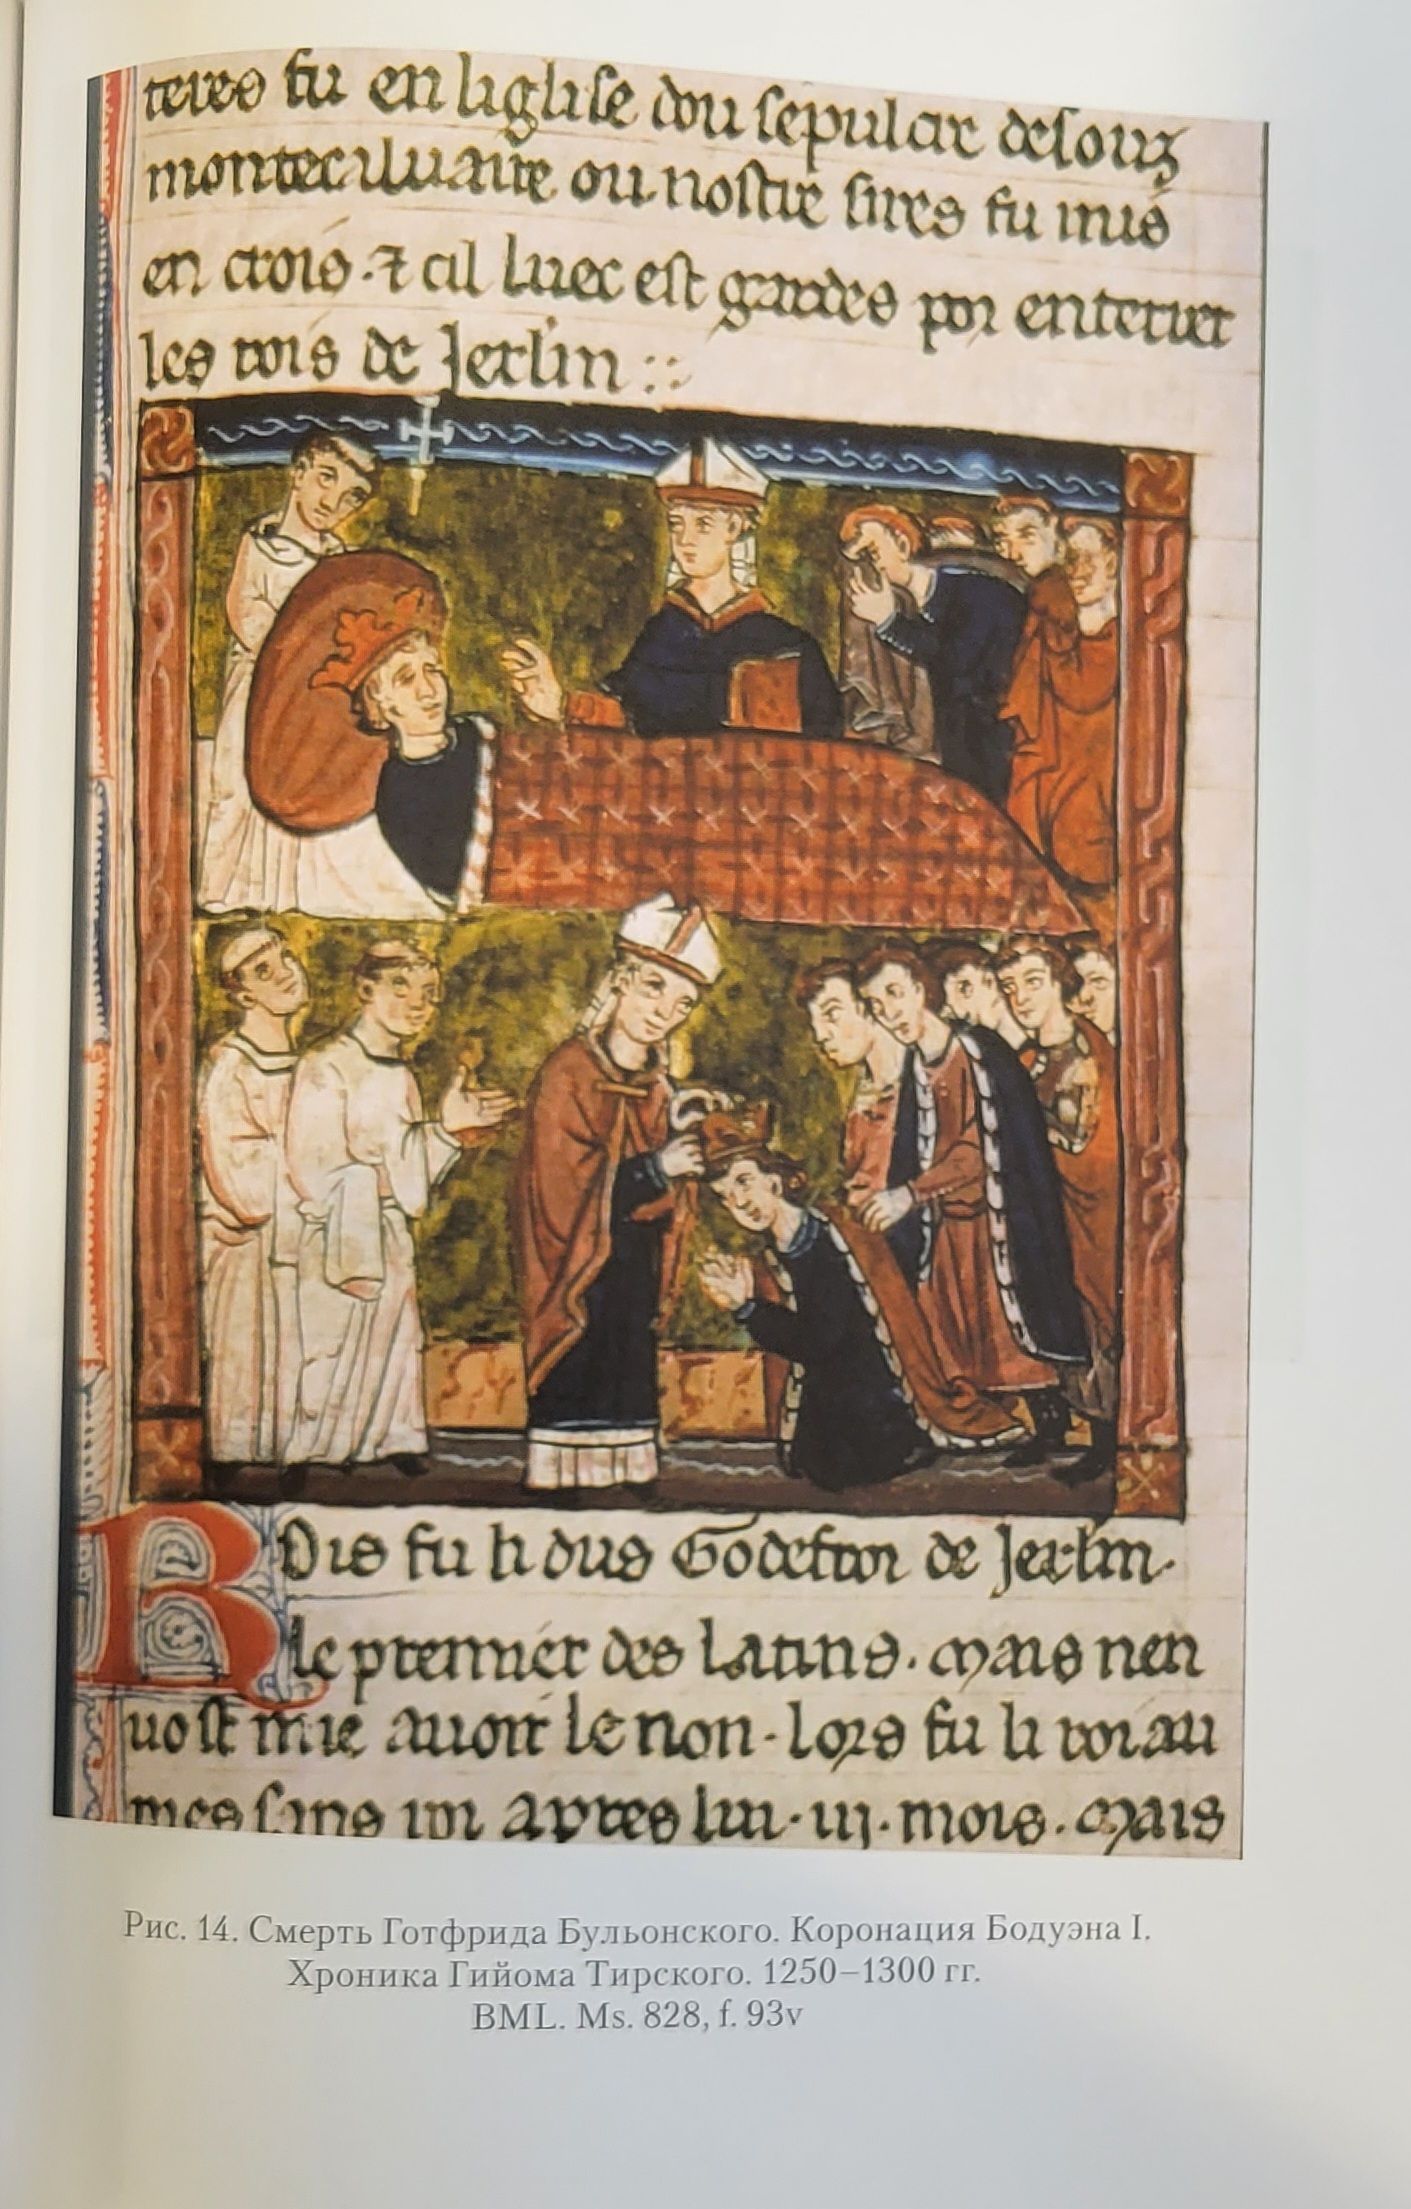 teres fu en liglise dou sepulcre desouz
montecaluaire ou nostre sires fu mis
en crois · ⁊ cil luec est gardes por enterrer
les rois de Jerlm ::
ROis fu li dus Godefroi de Jerlm·
le premier des latins · Mais nen
uost mie auoir le non · lors fu li roiau
mes sans roi apres lui · iij · mois · Mais
Рис. 14. Смерть Готфрида Бульонского. Коронация Бодуэна I.
Хроника Гийома Тирского. 1250–1300 гг.
BML. Ms. 828, f. 93v